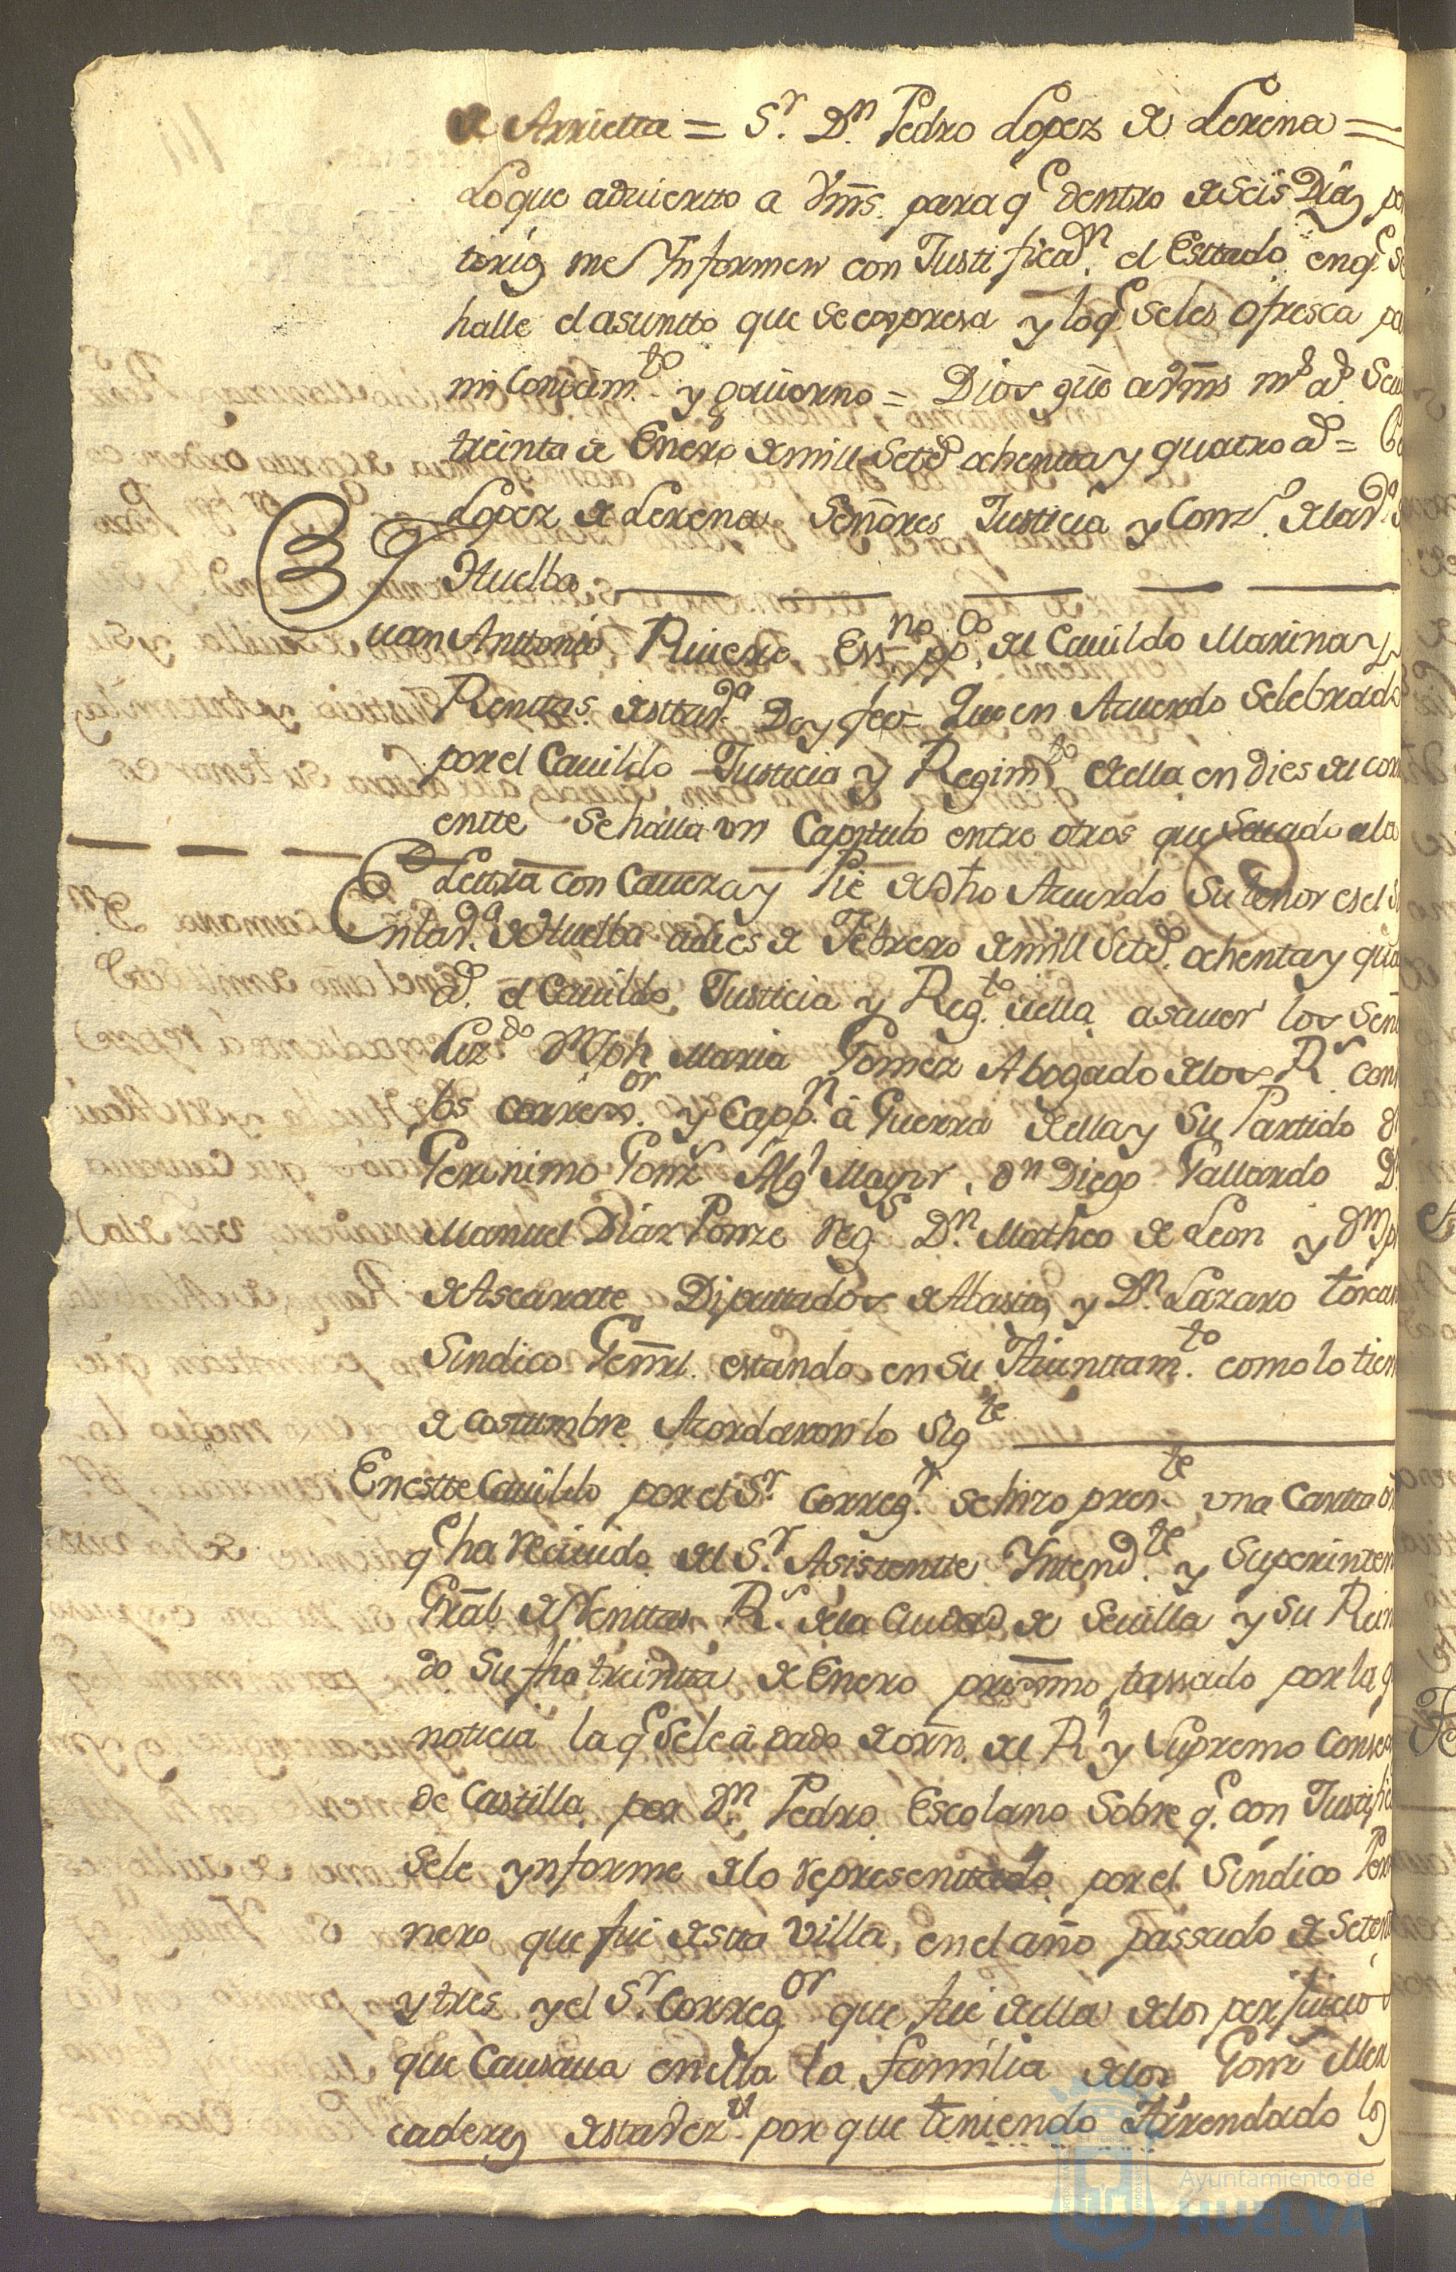 de Arrietta = S.r D.n Pedro Lopez de Lerena =
Loque adviertto a Vms. para q.e dentro de seis Dias pe
torios me Ynformen con Justificaz.n el Esttado en q.e se
halle el asuntto que se expresa y loq.e seles ofresca pa
mi conocim.to y govierno = Dios gûe a Vms m.s a.s Sevi
treinta de Enero de mill Setez.s ochenta y quatro a.s = Pe
Lopez de Lerena Señores Justicia y Conz.o dela v.a d
Huelba
Juan Anttonio Rivero Ess.no pp.co del Cavildo Marina y
Renttas desttav.a Doy fee = Que en Acuerdo Selebrado
por el Cavildo Justicia y Regim.to de ella en dies del corri
entte se halla un Capitulo entre otros que Sacado ala
Lettra con Cavera y Pie de dho Acuerdo su tenor es el s
En la v.a de Huelba a dies de Febrero de mill Setez.s ochenta y qua
a.s el Cavildo Justicia y Reg.to de ella asaver los Señ
Liz.do D.n Jph Maria Gomez Abogado delos R.s cons
jos correx.or y Capp.n â Guerra de ella y su Partido d
Geronimo Gomz Alg.l Mayor, d.n Diego Gallardo D.
Manuel Diaz Ponze reg.s D.n Matheo de Leon y d.n Jp
de Ascarate Diputtados de Abastos y D.n Lazaro torcan
Sindico Genrâl. estando en su Aiunttam.to como lo tien
de costumbre Acordaron lo sig.te
En estte Cavildo por el S.r Correg.r se hizo pres.te una Cartta ôr
q.e ha recivido del S.r Asistentte Yntend.te y Superinten
Grâl de Renttas R.s dela Ciudad de Sevilla y su Rein
do su fha treintta de Enero proximo passado por la q
noticia la q.e sele â dado de orn. del R.l y Supremo Conse
de Castilla por D.n Pedro Escolano Sobre q.e con Justific
sele ynforme delo representtado por el Sindico Perso
nero que fue de sta Villa, en el año passado de setent
y tres y el S.r Correg.or que fue de ella delos perjuicios
que Causava en ella la familia delos Gomz Mer
caderes de sta vez.d por que teniendo Arrendado los
Ayuntamiento de
HUELVA